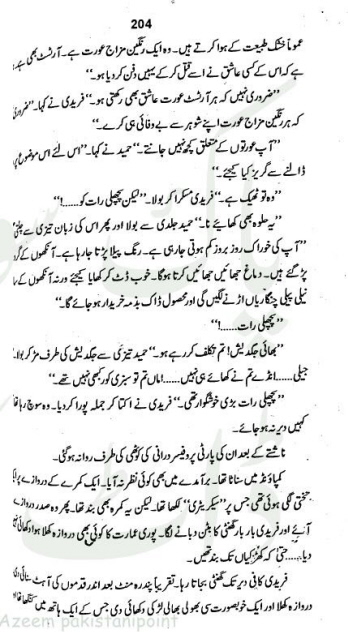 204
عموماً خشک طبیعت کے ہوا کرتے ہیں۔ وہ ایک رنگین مزاج عورت ہے۔ آرٹسٹ بھی ہے
ہے کہ اس کے کسی عاشق نے اسے قتل کر کے یہیں دفن کر دیا ہو۔‘‘
’’ضروری نہیں کہ ہر آرٹسٹ عورت عاشق بھی رکھتی ہو۔‘‘ فریدی نے کہا۔ ’’ضروری
کہ ہر رنگین مزاج عورت اپنے شوہر سے بے وفائی ہی کرے۔‘‘
’’آپ عورتوں کے متعلق کچھ نہیں جانتے۔‘‘ حمید نے کہا۔ ’’اس لئے اس موضوع پر
ڈالنے سے گریز کیا کیجئے۔‘‘
’’وہ تو ٹھیک ہے۔‘‘ فریدی مسکرا کر بولا۔ ’’لیکن پچھلی رات کو......!‘‘
’’یہ حلوہ بھی کھائیے نا۔‘‘ حمید جلدی سے بولا اور پھر اس کی زبان تیزی سے چلنے
’’آپ کی خوراک روز بروز کم ہوتی جا رہی ہے۔ رنگ پیلا پڑتا جا رہا ہے۔ آنکھوں کے گرد
پڑ گئے ہیں۔ دماغ سجائیں سجائیں کرتا ہوگا۔ خوب ڈٹ کر کھایا کیجئے ورنہ آنکھوں کے
نیلی پیلی چنگاریاں اڑنے لگیں گی اور محصول ڈاک بذمہ خریدار ہو جائے گا۔‘‘
’’پچھلی رات......!‘‘
’’بھائی جگدیش! تم تکلف کر رہے ہو۔‘‘ حمید تیزی سے جگدیش کی طرف مڑ کر بولا۔
جیلی......انڈے تم نے کھائے ہی نہیں......! اماں تم تو سبزی کور کبھی نہیں تھے۔‘‘
’’پچھلی رات بڑی خوشگوار تھی۔‘‘ فریدی نے اکتا کر جملہ پورا کر دیا۔ وہ سوچ رہا تھا
کہیں دیر نہ ہو جائے۔
ناشتے کے بعد ان کی پارٹی پروفیسر درانی کی کوٹھی کی طرف روانہ ہو گئی۔
کمپاؤنڈ میں سناٹا تھا۔ برآمدے میں بھی کوئی نظر نہ آیا۔ ایک کمرے کے دروازے پر
تختی لگی ہوئی تھی جس پر ’’سیکریٹری‘‘ لکھا تھا۔ لیکن یہ کمرہ بھی بند تھا۔ پھر وہ صدر دروازے
آئے اور فریدی بار بار گھنٹی کا بٹن دبانے لگا۔ پوری عمارت کا کوئی بھی دروازہ کھلا ہوا دکھائی
دیا.....حتیٰ کہ کھڑکیاں تک بند تھیں۔
فریدی کافی دیر تک گھنٹی بجاتا رہا۔ تقریباً پندرہ منٹ بعد اندر قدموں کی آہٹ سنائی
دروازہ کھلا اور ایک خوبصورت سی بھولی بھالی لڑکی دکھائی دی جس کے ایک ہاتھ میں
Azeem pakistanipoint